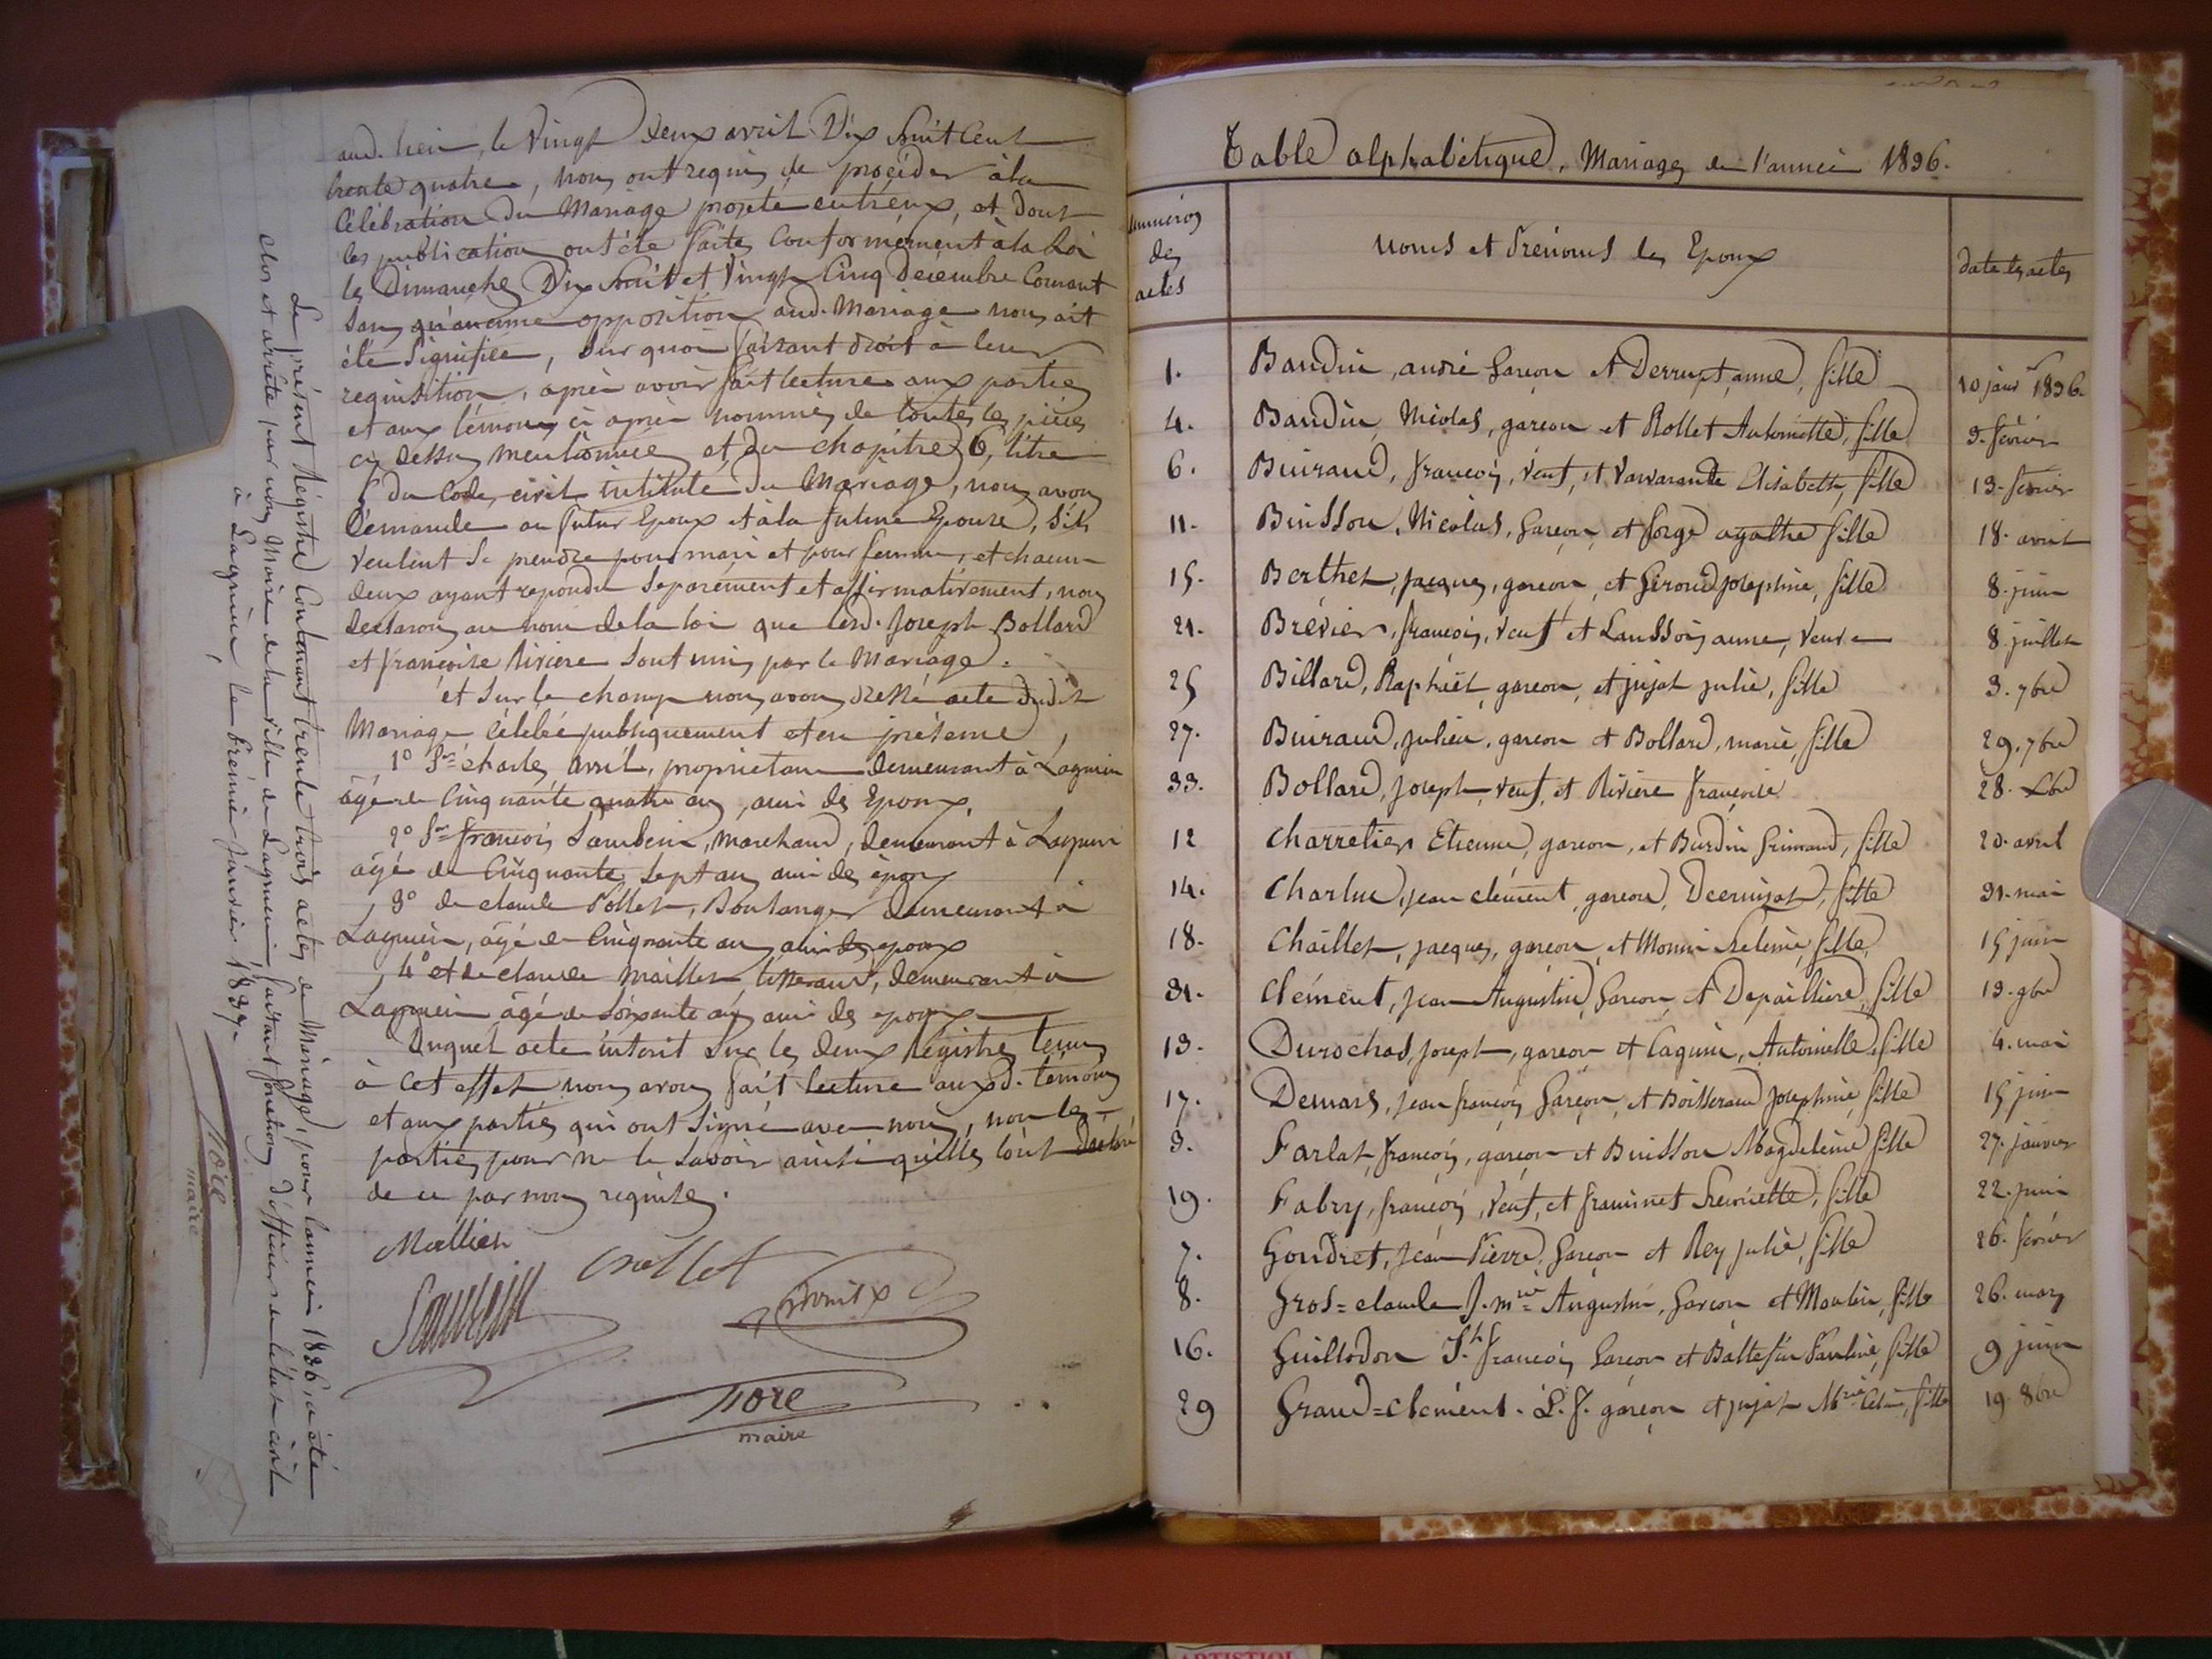 aud. lieu, le Vingt Deux avril Dix huit Cent
trente quatre, nous ont requis de procéder à la
Célébration du Mariage projeté entr'eux, et dont
les publication ont été faites Conformément à la Loi
les Dimanches Dix huit et Vingt Cinq Décembre Courant
sans qu'aucune opposition aud. Mariage nous ait
été Signifiée, sur quoi faisant droit à leur
requisition, après avoir fait lecture aux parties
et aux témoins ci après nommés de toutes les pièces
ci dessus mentionnées et du chapitre 6, titre
5 du Code civil intitulé du Mariage, nous avons
demandé au futur Epoux et à la future Epouse, s'ils
veulent se prendre pour mari et pour femme, et chacun
deux ayant repondu séparément et affirmativement, nous
déclarons au nom de la loi que led. Joseph Bollard
et françoise Riviere sont unis par le Mariage.
et sur le champ nous avons dressé acte dudit
Mariage Célébré publiquement et en présence
1° Sr charles avril, propriétaire demeurant à Lagnieu
âgé de Cinquante quatre ans, ami des Epoux,
2° Sr françois Sambein, Marchand, demeurant à Lagnieu
âgé de Cinquante Sept ans ami des époux
3° de claude Pollet, Boulanger demeurant à
Lagnieu, âgé de Cinquante ans, ami des epoux
4° et de claude Maillet, tisserand, demeurant à
Lagnieu âgé de soixante ans ami des epoux
Duquel acte inscrit sur les deux Régistres tenus
à cet effet nous avons fait lecture auxd. témoins
et aux parties qui ont signé avec nous, non les
parties pour ne le savoir ainsi qu'elles l'ont déclaré
de ce par nous requises.
maire
Le présent Régistre Contenant trente trois actes de Mariage, pour l'année 1836, a été
Clos et arrêté par nous Maire de la ville de Lagnieu, faisant fonction d'officier de l'état civil
à Lagnieu, le Premier Janvier 1837.
maire
Table alphabétique, Mariages de l'année 1836.
numéros des actes
Noms et Prénoms des Epoux
date des actes
1. Baudin, andré garçon et Derrupt, anne, fille 10 janvr 1836.
4. Baudin, Nicolas, garçon et Rollet Antoinette, fille 3. février
6. Buiraud, françois, veuf, et Vavarante Elisabeth, fille 13. février
11. Buisson, Nicolas, garçon, et forge agathe fille 18. avril
15. Berthet, jacques, garçon, et Giroud josephine, fille 8. juin
21. Brevier, françois, veuf et Laussois anne, Veuve 8. juillet
25 Billard, Raphaël, garçon, et jujat julie, fille 3. 7bre
27. Buiraud, julien, garçon et Bollard, marie, fille 29. 7bre
33. Bollard, joseph, veuf, et Riviere françoise 28. Xbre
12 Charretier Etienne, garçon, et Burdin Grimaud, fille 20. avril
14. Charlin, jean clément, garçon, fille 31. mai
18. Chaillet, jacques, garçon, et Monin helenie, fille 15 juin
31. Clément, jean Augustin, garçon et Depaillière, fille 13. 9bre
13. Durochas, joseph, garçon et Lagnieu, Antoinette, fille 4. mai
17. Demars, jean françois garçon, et Boisserand Josephine, fille 15 juin
3. Farlat, françois, garçon et Buisson Magdeleine fille 27. janvier
19. Fabry, françois, veuf, et framinet henriette, fille 22. juin
7. Gondret, jean Pierre, garçon et Rey julie, fille 26. février
8. Gros=claude J. mie Augustin, garçon et Moulin, fille 26. mars
16. Guillodon Jh. françois garçon et Baltefin Pauline, fille 9 juin
29 Grand=clément. L. J. garçon et jujat Mrie, fille 19. 8bre